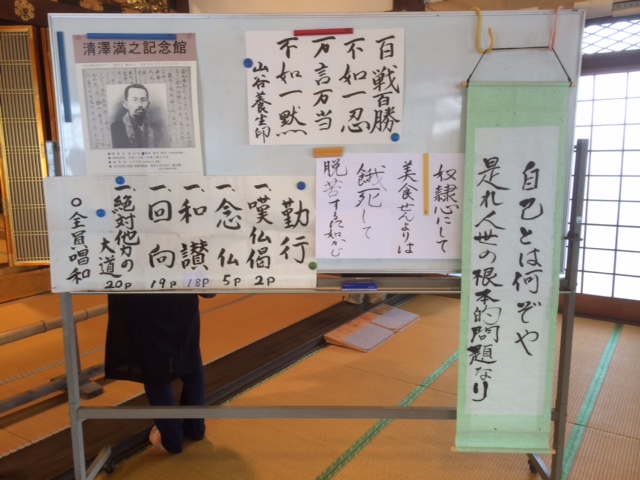 清澤満之記念館
百戦百勝
不如一忍
万言万当
不如一黙
山谷養生印
奴隷心にして
美食せんよりは
餓死して
脱苦するに如かじ
勤行
一、嘆仏偈 2P
一、念仏 5P
一、和讃 18P
一、回向 19P
一、絶対他力の大道 20P
○全員唱和
自己とは何ぞや
是れ人世の根本的問題なり